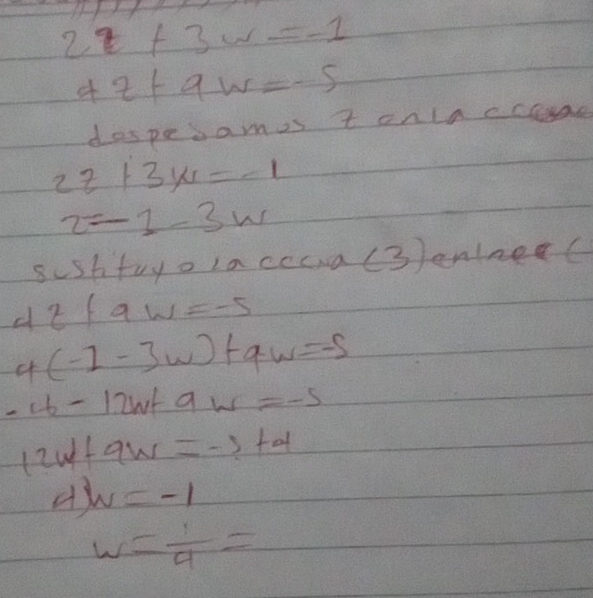 2z + 3w = -1
4z + 9w = -5
despesamos z en la
2z + 3w = -1
z = -1 - 3w
sustituyo la (3) en la
4z + 9w = -5
4(-1 - 3w) + 9w = -5
-4 - 12w + 9w = -5
12w + 9w = -5 + 4
w = -1
w = =